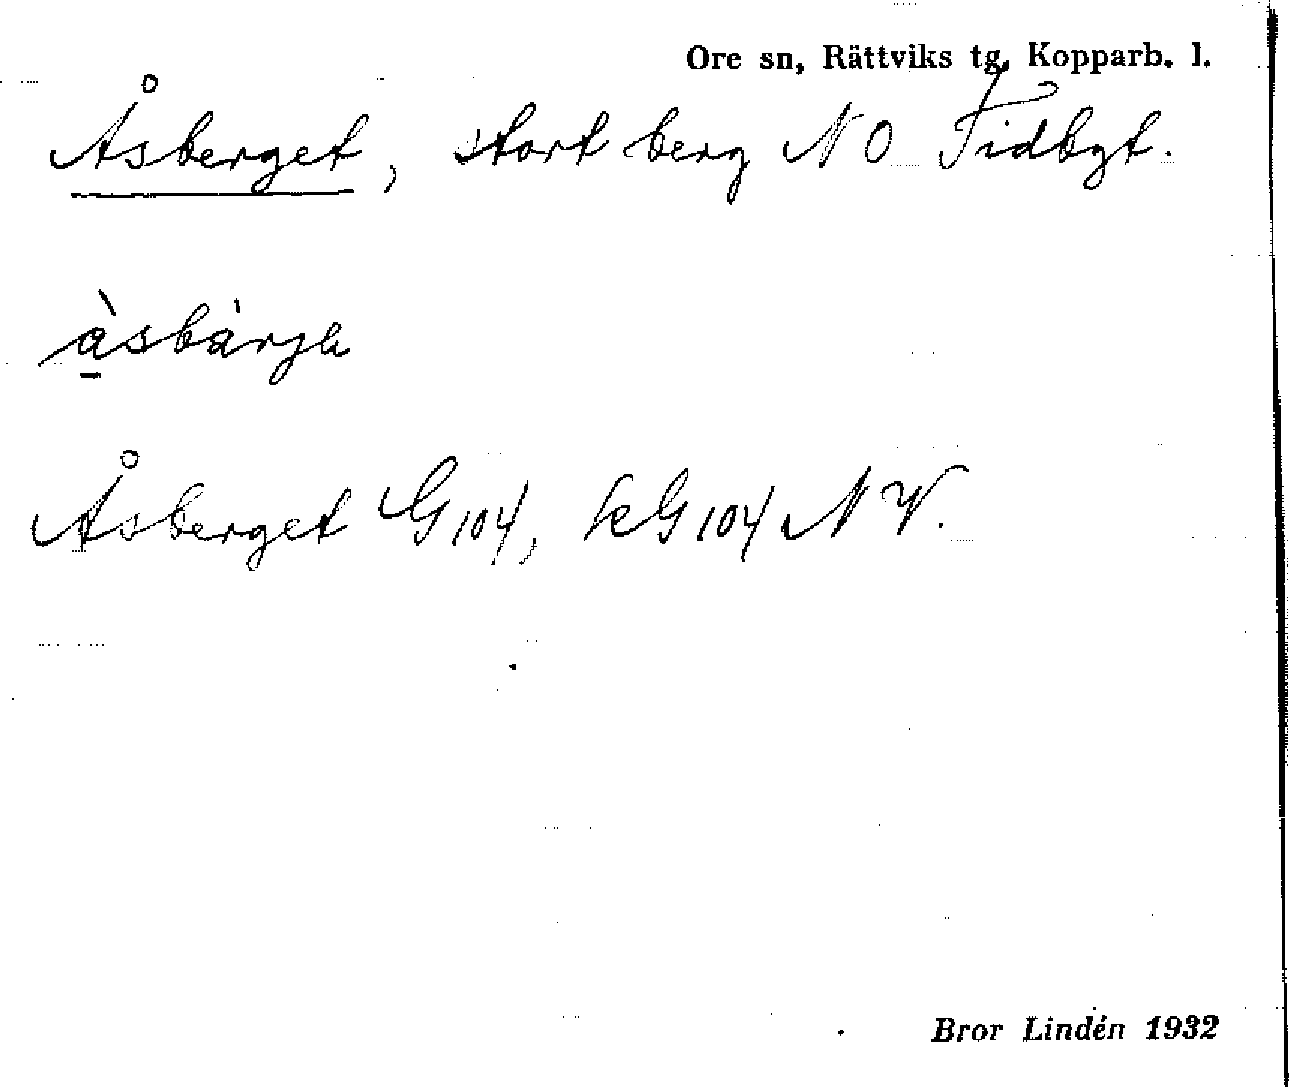 Ore sn, Rättviks tg, Kopparb. l.
Åsberget, stort berg NO Tidbgt.
å̱̀sbàrjh
Åsberget G104, kG104 NV.
Bror Lindén 1932